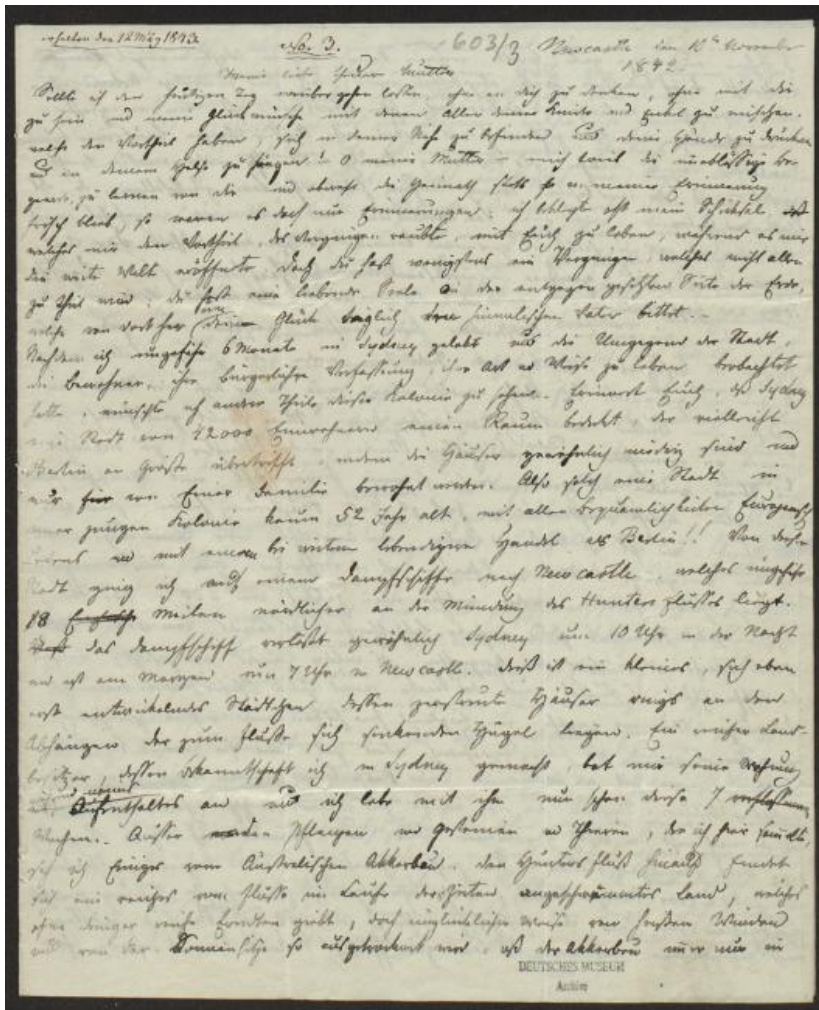 erhalten den 12 März 1843.
No. 3.
603/3
Newcastle den 10ten November
1842
Meine liebe theure Mutter
Sollte ich den heutigen Tag vorüber gehen lassen, ohne an dich zu denken, ohne mit dir
zu sein und meine Glückwünsche mit denen aller deiner Kinder und Enkel zu mischen.
welche den Vortheil haben, sich in deiner Nähe zu befinden und deine Hände zu drücken
und an deinem Halse zu hängen! O meine Mutter
zu lernen von dir und obwohl die Heimath stets in meiner Erinnerung
frisch blieb, so waren es doch nur Erinnerungen; ich beklagte oft mein Schicksal
welches mir den Vortheil, des Vergnügen raubte, mit Euch zu leben, während es mir
die weite Welt eröffnete. Doch du hast wenigstens ein Vergnügen, welches nicht allen
zu Theil wird; du hast eine liebende Seele an der entgegen gesetzten Seite der Erde,
welche von dort her Glück täglich himmlischen Vater bittet. –
Nachdem ich ungefähr 6 Monate in Sydney gelebt und die Umgegend der Stadt,
die Bewohner, ihre bürgerliche Verfassung, ihre Art und Weise zu leben beobachtet
hatte, wünschte ich andere Theile dieser Kolonie zu sehen. Erinnert Euch, daß Sydney
eine Stadt von 42000 Einwohnern einen Raum bedeckt, der vielleicht
Berlin an Größe übertrifft, indem die Häuser gewöhnlich niedrig sind und
nur von Einer Familie bewohnt werden. Also solch eine Stadt in
einer jungen Kolonie kaum 52 Jahr alt, mit allen Bequemlichkeiten Europäischen
Lebens und mit einem bei weitem lebendigeren Handel als Berlin!! Von dieser
Stadt ging ich auf einem Dampfschiffe nach Newcastle, welches ungefähr
18 Meilen nördlicher an der Mündung des Hunters Flusses liegt.
das Dampfschiff verläßt gewöhnlich Sydney um 10 Uhr in der Nacht
und ist am Morgen um 7 Uhr in Newcastle. Dieß ist ein kleines, sich eben
erst entwickelndes Städtchen dessen zerstreute Häuser rings an den
Abhängen der zum Flusse sich senkenden Hügel liegen. Ein reicher Land-
besitzer, dessen Bekanntschaft ich in Sydney gemacht, bot mir seine Wohnung
Aufenthaltes an und ich lebe mit ihm nun schon diese 7
Wochen. Ausser den Pflanzen und Gesteinen und Thieren, die ich hier sammle,
seh ich Einiges vom Australischen Akkerbau. Den Hunters Fluß findet
sich ein reiches vom Flusse im Laufe der Zeiten angeschwemmtes Land, welches
ohne Dünger reiche Erndten giebt, doch unglücklicher Weise von heißen Winden
und von der Sonnenhitze so ausgetrocknet wird, daß der Akkerbau immer nur in
DEUTSCHES MUSEUM
Archiv